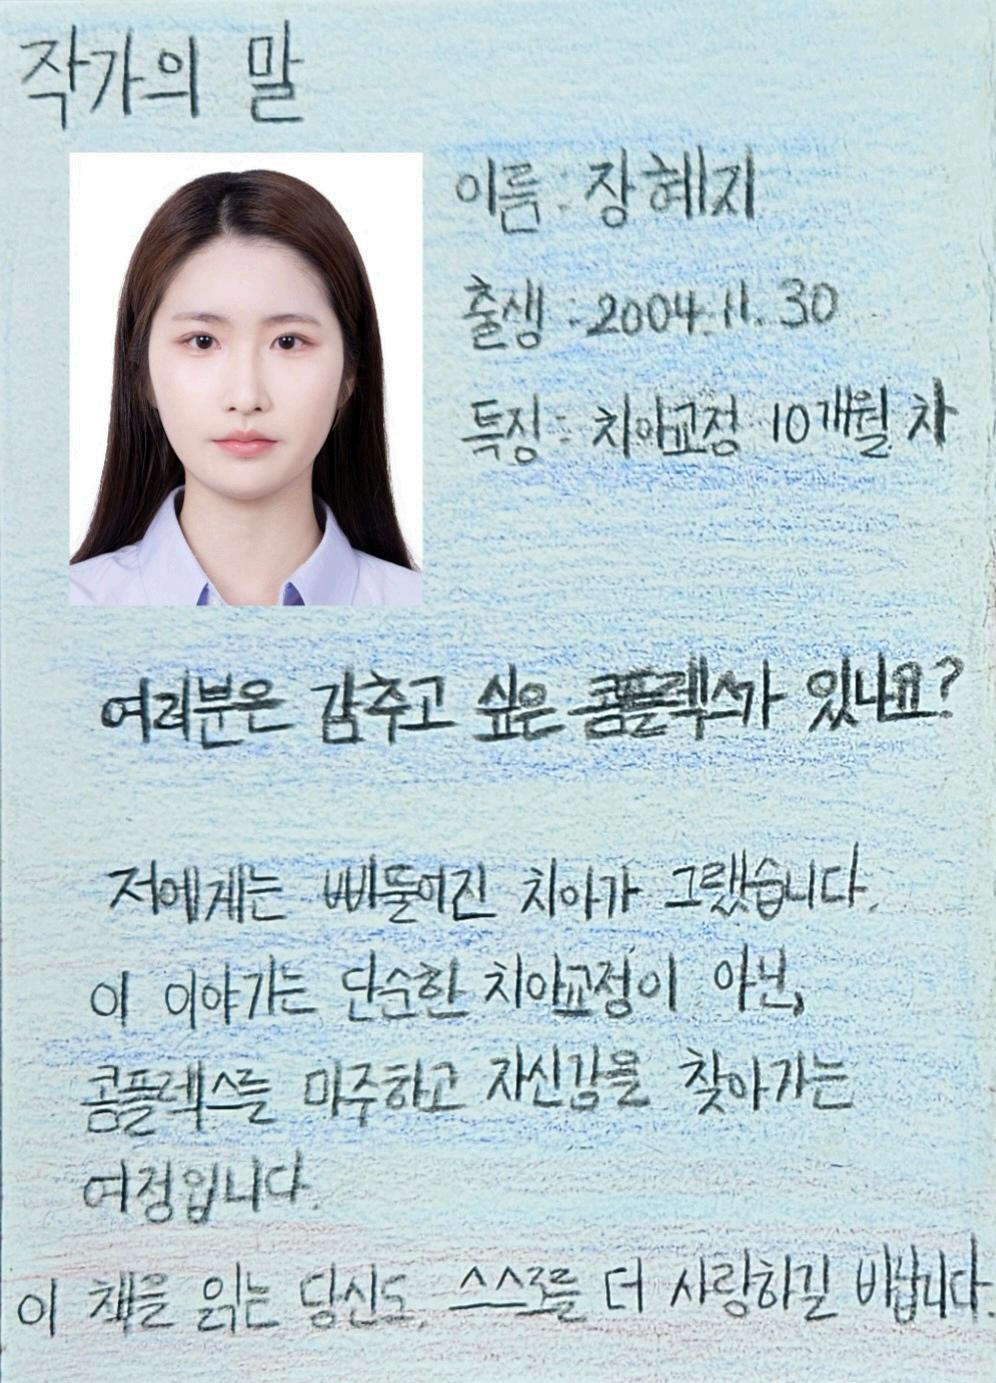 작가의 말
이름 : 장혜지
출생 : 2004. 11. 30
특징 : 치아교정 10개월 차
여러분은 감추고 싶은 콤플렉스가 있나요?
저에게는 삐뚤어진 치아가 그랬습니다.
이 이야기는 단순한 치아교정이 아닌,
콤플렉스를 마주하고 자신감을 찾아가는
여정입니다.
이 책을 읽는 당신도, 스스로를 더 사랑하길 바랍니다.